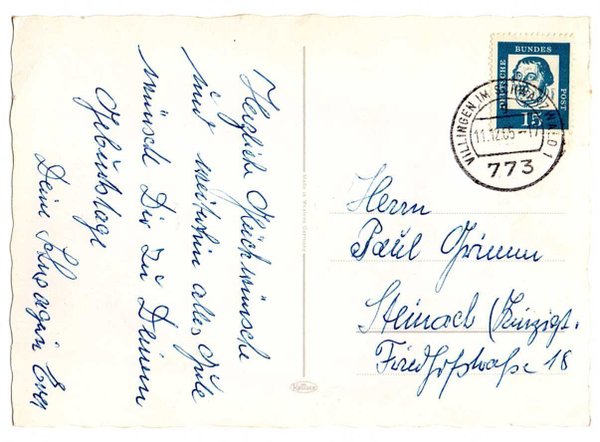 Herzliche Glückwünsche
und weiterhin alles Gute
wünsche Dir zu Deinem
Geburtstage
Deine Schwägerin
DEUTSCHE
BUNDES
POST
15
VILLINGEN IM SCHWARZWALD 1
11.12.65-17
773
Herrn
Paul Grimm
Steinach (Kinzigt.
Friedhofstraße 18
Made in Western Germany